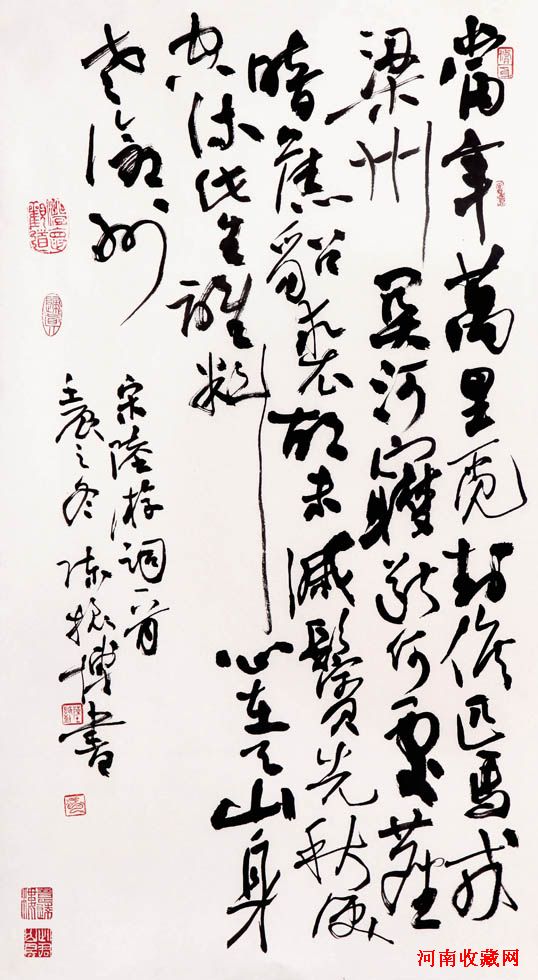 當年萬里覓封侯匹馬戍
梁州關河夢斷何處塵
暗舊貂裘胡未滅鬢先秋淚
空流此生誰料心在天山身
老滄洲
宋陸游詞一首
壬辰之冬陈振博書
河南收藏网